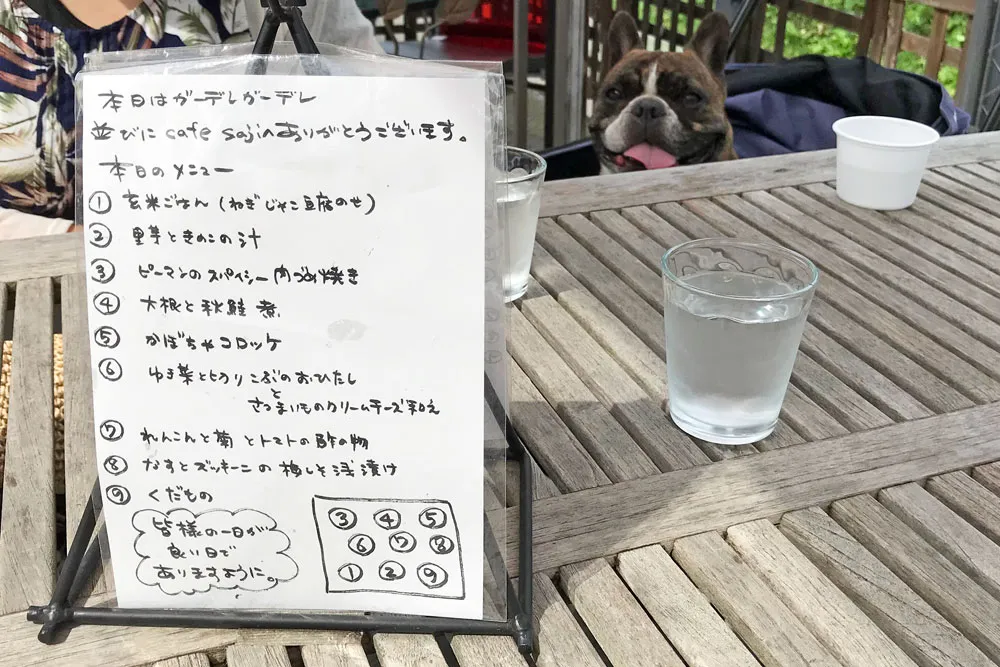 本日はガーデレガーデレ
並びに cafe sajiへありがとうございます。
本日のメニュー
① 玄米ごはん (ねぎじゃこ豆腐のせ)
② 里芋ときのこの汁
③ ピーマンのスパイシー肉づめ焼き
④ 大根と秋鮭煮
⑤ かぼちゃコロッケ
⑥ ゆき菜ときりこぶのおひたし
と
さつまいものクリームチーズ和え
⑦ れんこんと菊とトマトの酢の物
⑧ なすとズッキーニの梅しそ浅漬け
⑨ くだもの
皆様の一日が
良い日で
ありますように。
③ ④ ⑤
⑥ ⑦ ⑧
① ② ⑨